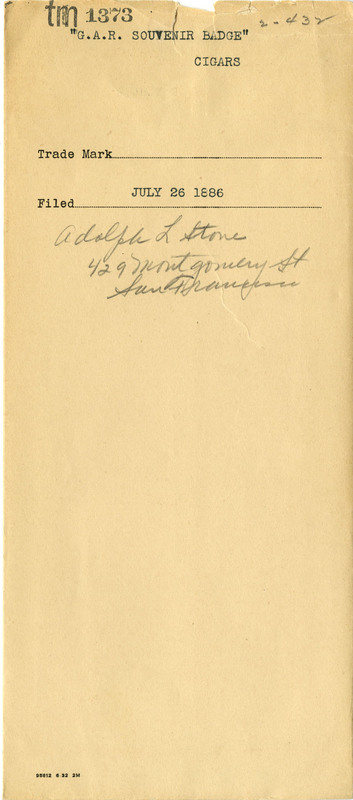 tm 1373 2-432
"G.A.R. SOUVENIR BADGE"
CIGARS
Trade Mark
JULY 26 1886
Filed
Adolph L Stone
429 Montgomery St
San Francisco